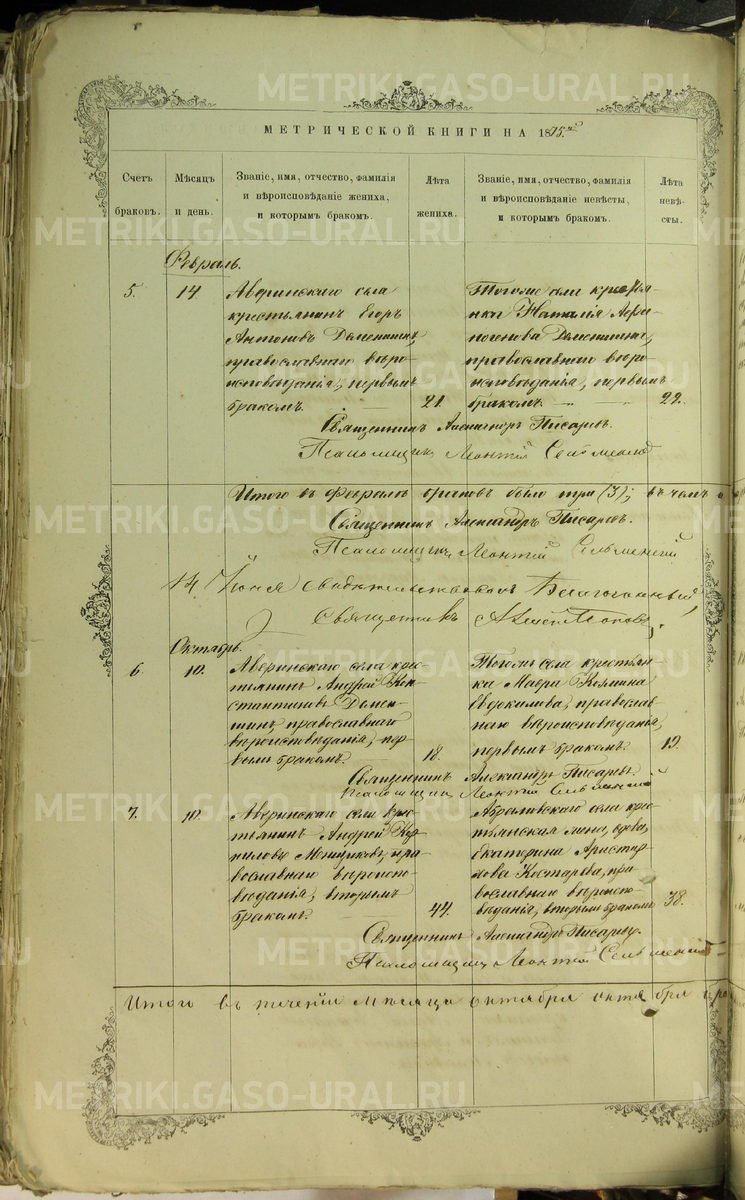 МЕТРИЧЕСКОЙ КНИГИ НА 1875.
Счетъ браковъ.
Мѣсяцъ и день.
Званіе, имя, отчество, фамилія
и вѣроисповѣданіе жениха,
и которымъ бракомъ.
Лѣта жениха.
Званіе, имя, отчество, фамилія
и вѣроисповѣданіе невѣсты,
и которымъ бракомъ.
Лѣта невѣ-
сты.
Февраль.
5.
14
Аверинскаго села
крестьянинъ Егоръ
Антоновъ
православнаго вѣро-
исповѣданія, первымъ
бракомъ.
21.
Тогоже села крестья-
нка Наталія
православнаго вѣро-
исповѣданія, первымъ
бракомъ.
22.
Священникъ Александръ Писаревъ.
Псаломщикъ Леонтій
Итого въ Февралѣ браковъ было три (3); въ чемъ
Священникъ Александръ Писаревъ.
Псаломщикъ Леонтій
14 Іюня свидѣтельствовалъ Благочинный,
Священникъ Поповъ.
Октябрь.
6.
10.
Аверинскаго села крес-
тьянинъ Андрей Кон-
стантиновъ
православнаго
вѣроисповѣданія, пер-
вымъ бракомъ.
18.
Тогоже села крестьян-
ка Мавра Козмина
Евдокимова, православ-
наго вѣроисповѣданія,
первымъ бракомъ.
19.
Священникъ Александръ Писаревъ.
Псаломщикъ Леонтій
7.
10.
Аверинскаго села крес-
тьянинъ Андрей
пра-
вославнаго вѣроиспо-
вѣданія, вторымъ
бракомъ.
44.
села крес-
тьянская вдова,
Екатерина Аристар-
хова Костарева, пра-
вославнаго вѣроиспо-
вѣданія, вторымъ бракомъ
38.
Священникъ Александръ Писаревъ.
Псаломщикъ Леонтій
Итого въ теченіи мѣсяца октября октября
METRIKI.GASO-URAL.RU